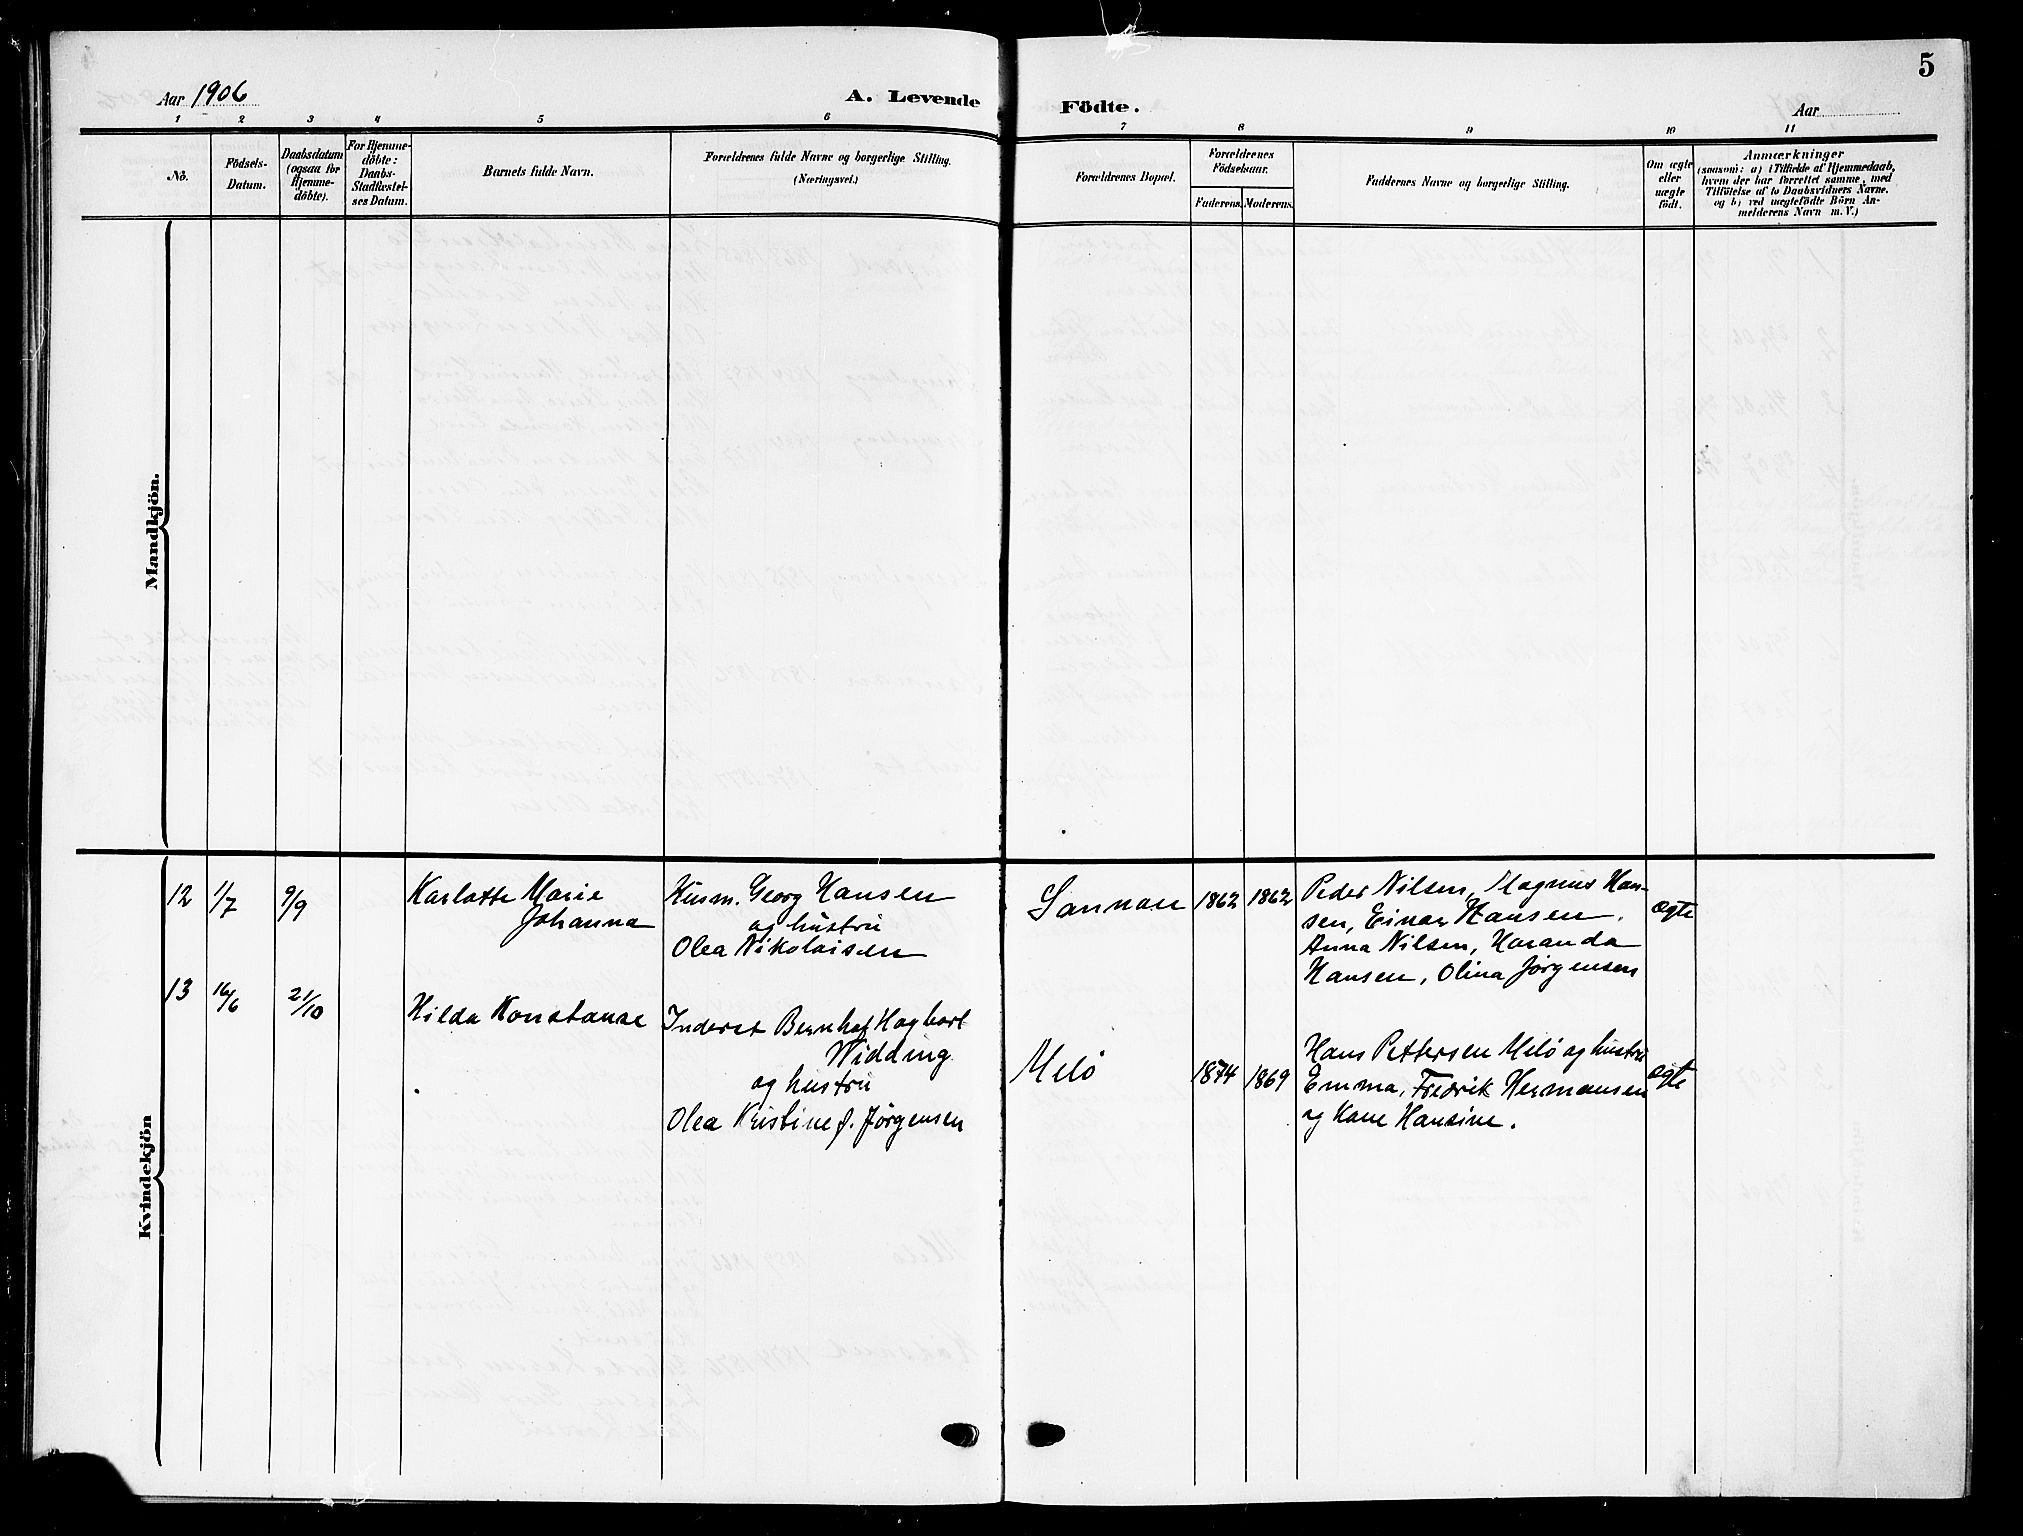 5
Aar 1906
A. Levende
Födte.
Aar
1 2 3 4 5 6 7 8 9 10 11
No.
Födsels-
Datum.
Daabsdatum
(ogsaa for
Hjemme-
döbte).
For Hjemme-
döbte:
Daabs-
Stadfæstel-
ses Datum.
Barnets fulde Navn.
Forældrenes fulde Navne og borgerlige Stilling.
(Næringsvei.)
Forældrenes Bopæl.
Forældrenes
Födselsaar.
Faderens. Moderens.
Faddernes Navne og borgerlige Stilling.
Om ægte
eller
uægte
födt.
Anmærkninger
(saasom: a) i Tilfælde af Hjemmedaab,
hvem der har forrettet samme, med
Tilföielse af to Daabsvidners Navne.
og b) ved uægtefödte Börn An-
melderens Navn m. V.)
Mandkjön.
Kvindekjön
12 1/7 9/9
Karlotte Marie
Johanna
Husm. Georg Hansen
og hustru
Olea Nikolaisen
Sannan 1862 1862
Peder Nilsen, Magnus Han-
sen, Einar Hansen.
Anna Nilsen, Haranda
Hansen, Olina Jørgensen
ægte
13 16/6 21/10
Hilda Konstanse
Inderst Bernhof Hagbart
Widding
og hustru
Olea Kristine f. Jørgensen
Melö 1874 1869
Hans Pettersen Melö og hustru
Emma, Fredrik Hermansen
og Kone Hansine.
ægte